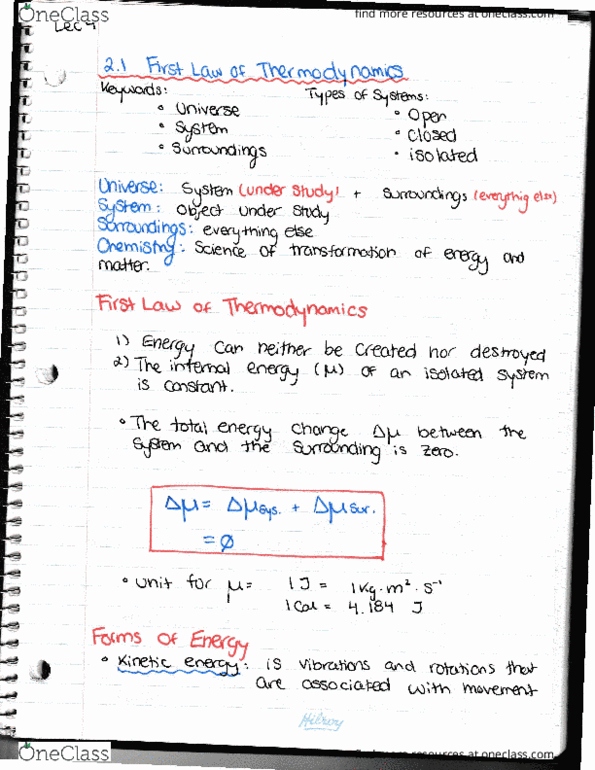 OneClass
find more resources at oneclass.com
Lec 4
2.1 First Law of Thermodynamics
Keywords: Types of Systems:
• Universe • Open
• System • Closed
• Surroundings • isolated
Universe: System (under study) + Surroundings (everythig else)
System: Object under study
Surroundings: everything else
Chemistry: Science of transformation of energy and
matter.
First Law of Thermodynamics
1) Energy can neither be created nor destroyed
2) The internal energy (μ) of an isolated system
is constant.
• The total energy change Δμ between the
System and the Surrounding is zero.
Δμ = Δμsys. + Δμsur.
= ∅
• Unit for μ = 1 J = 1 Kg·m²·s⁻¹
1 Cal = 4.184 J
Forms of Energy
• Kinetic energy: is vibrations and rotations that
are associated with movement
Hilroy
OneClass
find more resources at oneclass.com